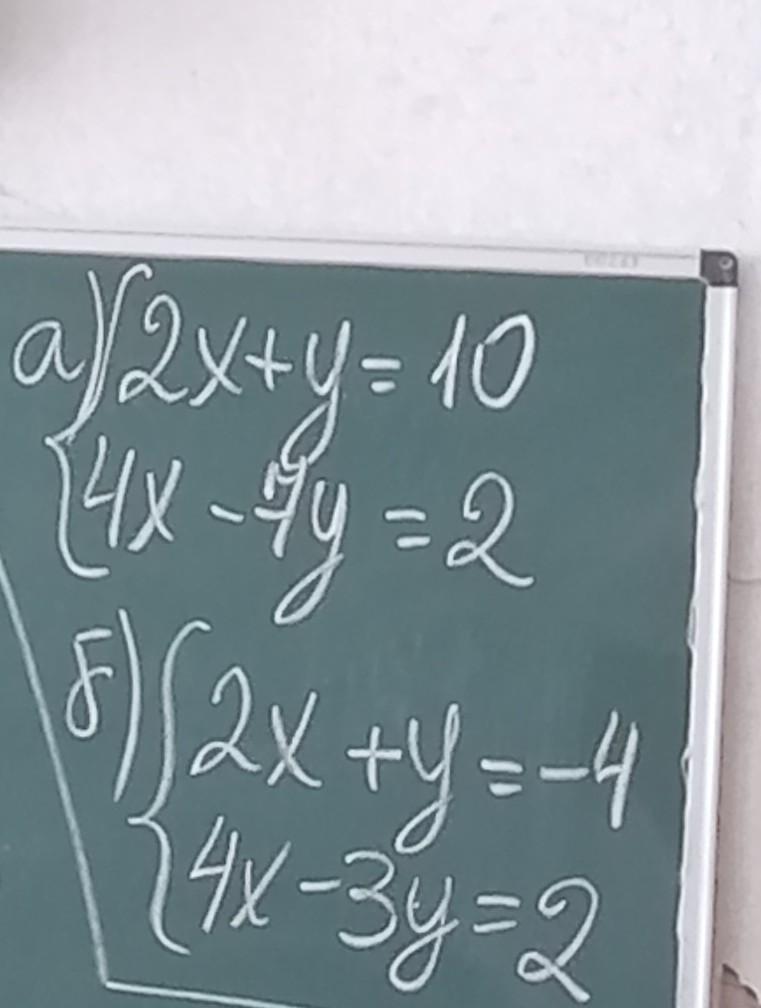 а) { 2x + y = 10
4x - 7y = 2
б) { 2x + y = -4
4x - 3y = 2